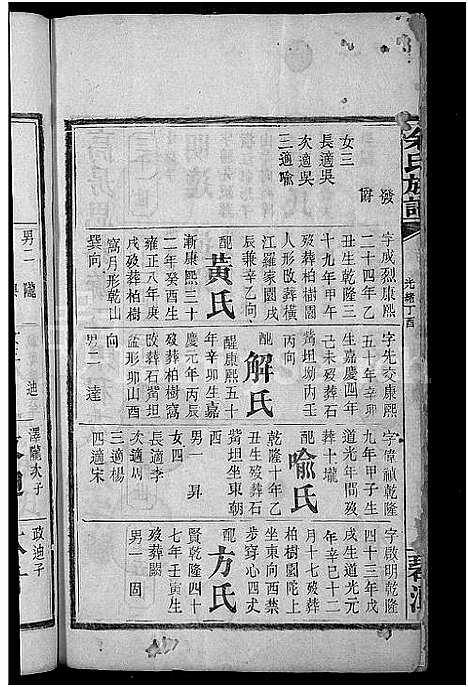 余氏族譜
光緒丁酉
發
爵
女三
長適吳
次適吳
三適喻
字成烈康熙
二十四年乙
丑生乾隆三
十九年甲午
歿葬柏樹園
人形改葬橫
江羅家園戌
辰兼辛乙向
配
黃氏
康熙三十
二年癸酉生
雍正八年庚
戌歿葬柏樹
窩月形乾山
巽向
字先交康熙
五十年辛卯
生嘉慶四年
己未歿葬石
觜坦坳內壬
丙向
配
解氏
康熙五十
年辛卯生嘉
慶元年丙辰
歿葬柏樹窩
改葬石觜坦
盆形卯山酉
向
男二 達
乾隆
九年甲子生
道光年間歿
葬十壠
配
喻氏
乾隆十年乙
丑生歿葬石
觜坦坐東朝
西
男一 昇
女四
長適李
次適周
三適楊
四適宋
字啟明乾隆
四十三年戊
戌生道光元
年辛巳十二
月十七歿葬
柏樹園陀上
坐東向西葬
步穿心四丈
配
方氏
乾隆四十
七年壬寅生
歿葬闕
男一 固
男二 隴
迪
澤隴次子
政迪子